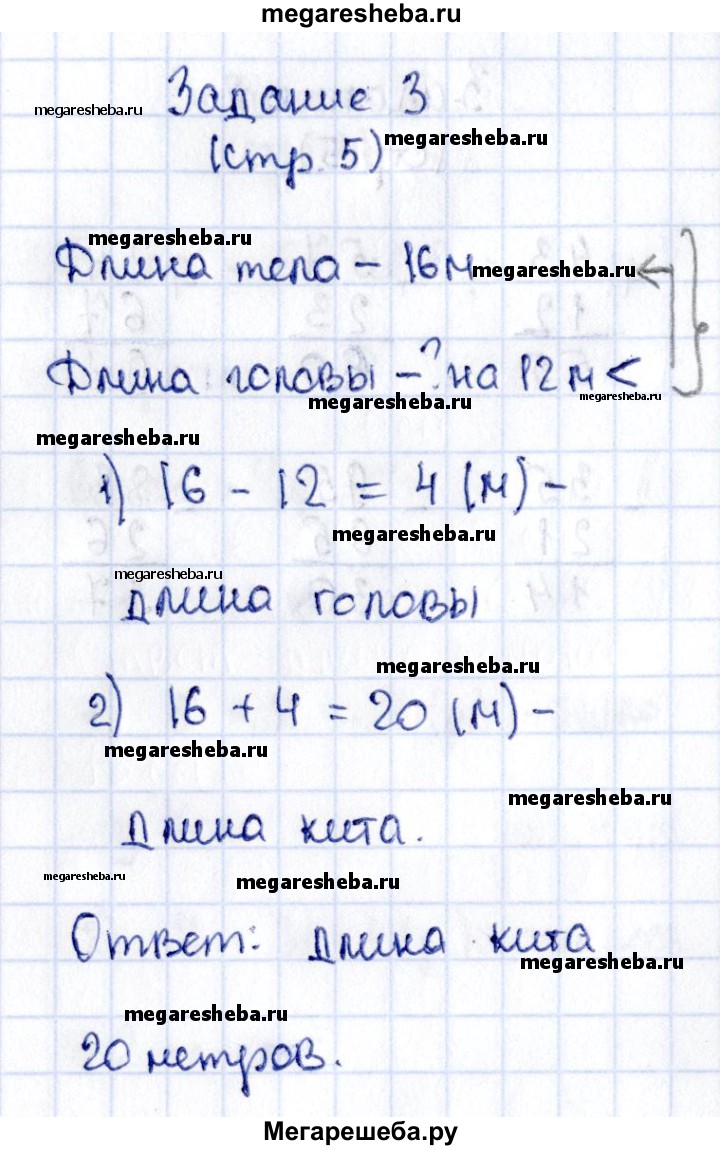 megaresheba.ru
Задание 3
megaresheba.ru
(стр. 5)
megaresheba.ru
megaresheba.ru
Длина тела – 16м
megaresheba.ru
Длина головы – ? на 12 м <
megaresheba.ru
megaresheba.ru
megaresheba.ru
1) 16 - 12 = 4 (м) -
megaresheba.ru
megaresheba.ru
длина головы
megaresheba.ru
2) 16 + 4 = 20 (м) -
megaresheba.ru
megaresheba.ru
длина кита.
megaresheba.ru
megaresheba.ru
Ответ: длина кита
megaresheba.ru
megaresheba.ru
20 метров.
Мегарешеба.ру